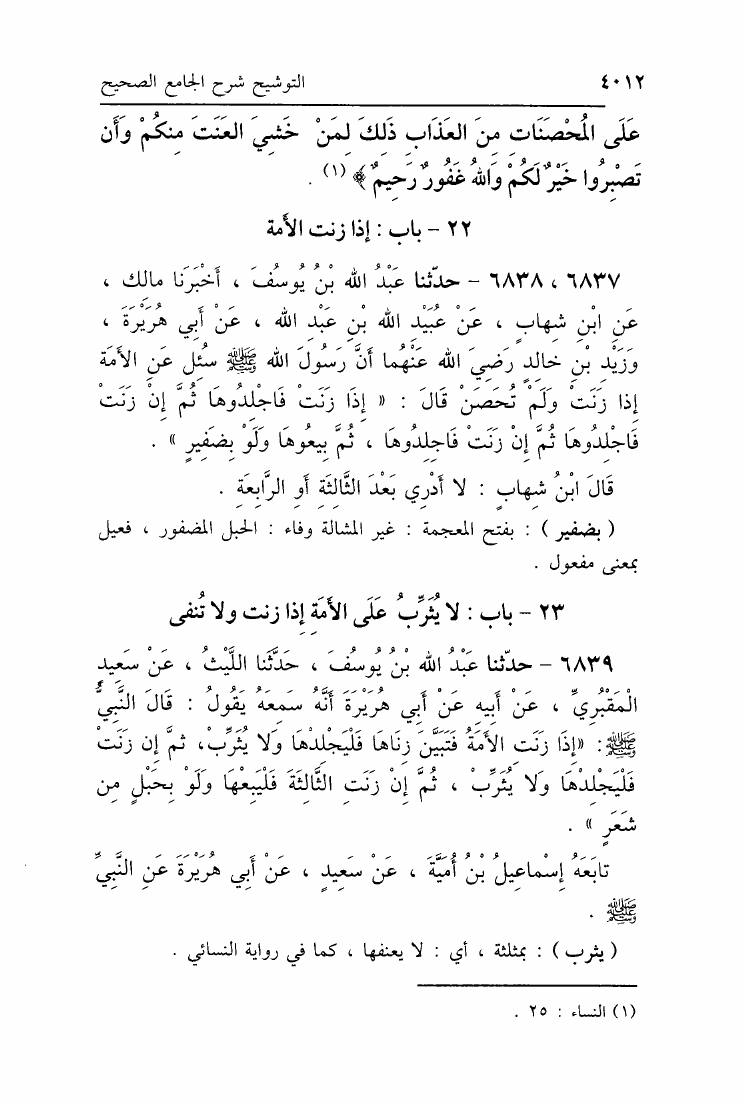 ٤٠١٢ التوشيح شرح الجامع الصحيح
عَلَى الْمُحْصَنَاتِ مِنَ العَذَابِ ذَلِكَ لِمَنْ خَشِيَ العَنَتَ مِنكُمْ وَأَن
تَصْبِرُوا خَيْرٌ لَكُمْ وَاللهُ غَفُورٌ رَحِيمٌ ﴾ (١) .
٢٢ - باب : إذا زنت الأمة
٦٨٣٧ ، ٦٨٣٨ - حدّثنا عَبْدُ الله بْنُ يُوسُفَ ، أَخْبَرَنَا مالِك ،
عَنِ ابْنِ شِهابٍ ، عَنْ عُبَيْدِ الله بْنِ عَبْدِ الله ، عَنْ أَبِي هُرَيْرَةَ ،
وَزَيْدِ بْنِ خالِدٍ رَضِيَ الله عَنْهُما أَنَّ رَسُولَ الله ﷺ سُئِل عَنِ الأمَة
إِذا زَنَتْ وَلَمْ تُحْصَنْ قَالَ : « إِذَا زَنَتْ فَاجْلِدُوهَا ثُمَّ إِنْ زَنَتْ
فَاجْلِدُوهَا ثُمَّ إِنْ زَنَتْ فَاجلِدُوهَا ، ثُمَّ بِيعُوهَا وَلَوْ بِضَفِيرٍ » .
قَالَ ابْنُ شِهابٍ : لا أَدْرِي بَعْدَ الثَّالِثَةِ أَوِ الرَّابِعَةِ .
( بضفير ) : بفتح المعجمة : غير المشالة وفاء : الحبل المضفور ، فعيل
بمعنى مفعول .
٢٣ - باب : لا يُثَرِّبُ عَلَى الأمَةِ إذا زنت ولا تُنفى
٦٨٣٩ - حدّثنا عَبْدُ الله بْنُ يُوسُفَ ، حَدَّثَنَا اللَّيْثُ ، عَنْ سَعِيدٍ
الْمَقْبُرِيِّ ، عَنْ أَبِيهِ عَنْ أَبِي هُرَيْرَةَ أَنَّهُ سَمِعَهُ يَقُولُ : قَالَ النَّبِيُّ
ﷺ : «إِذَا زَنَتِ الأَمَةُ فَتَبَيَّنَ زِنَاهَا فَلْيَجْلِدْهَا وَلا يُثَرِّبْ، ثمَّ إِن زَنَتْ
فَلْيَجْلِدْهَا وَلا يُثَرِّبْ ، ثُمَّ إِنْ زَنَتِ الثَّالِثَةَ فَلْيَبِعْهَا وَلَوْ بِحَبْلٍ مِن
شَعَرٍ » .
تابَعَهُ إِسْماعِيلُ بْنُ أُمَيَّةَ ، عَنْ سَعِيدٍ ، عَنْ أَبِي هُرَيْرَةَ عَنِ النَّبِيِّ
ﷺ .
( يثرب ) : بمثلثة ، أي : لا يعنفها ، كما في رواية النسائي .
(١) النساء : ٢٥ .